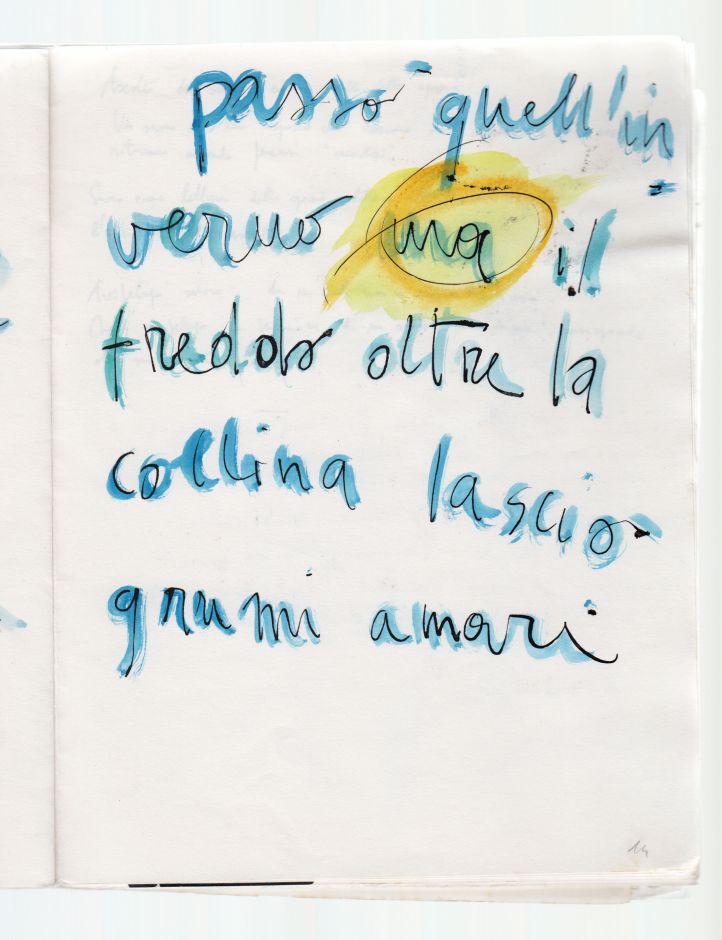 passò quell'in
verno ma il
freddo oltre la
collina lasciò
grumi amari
14